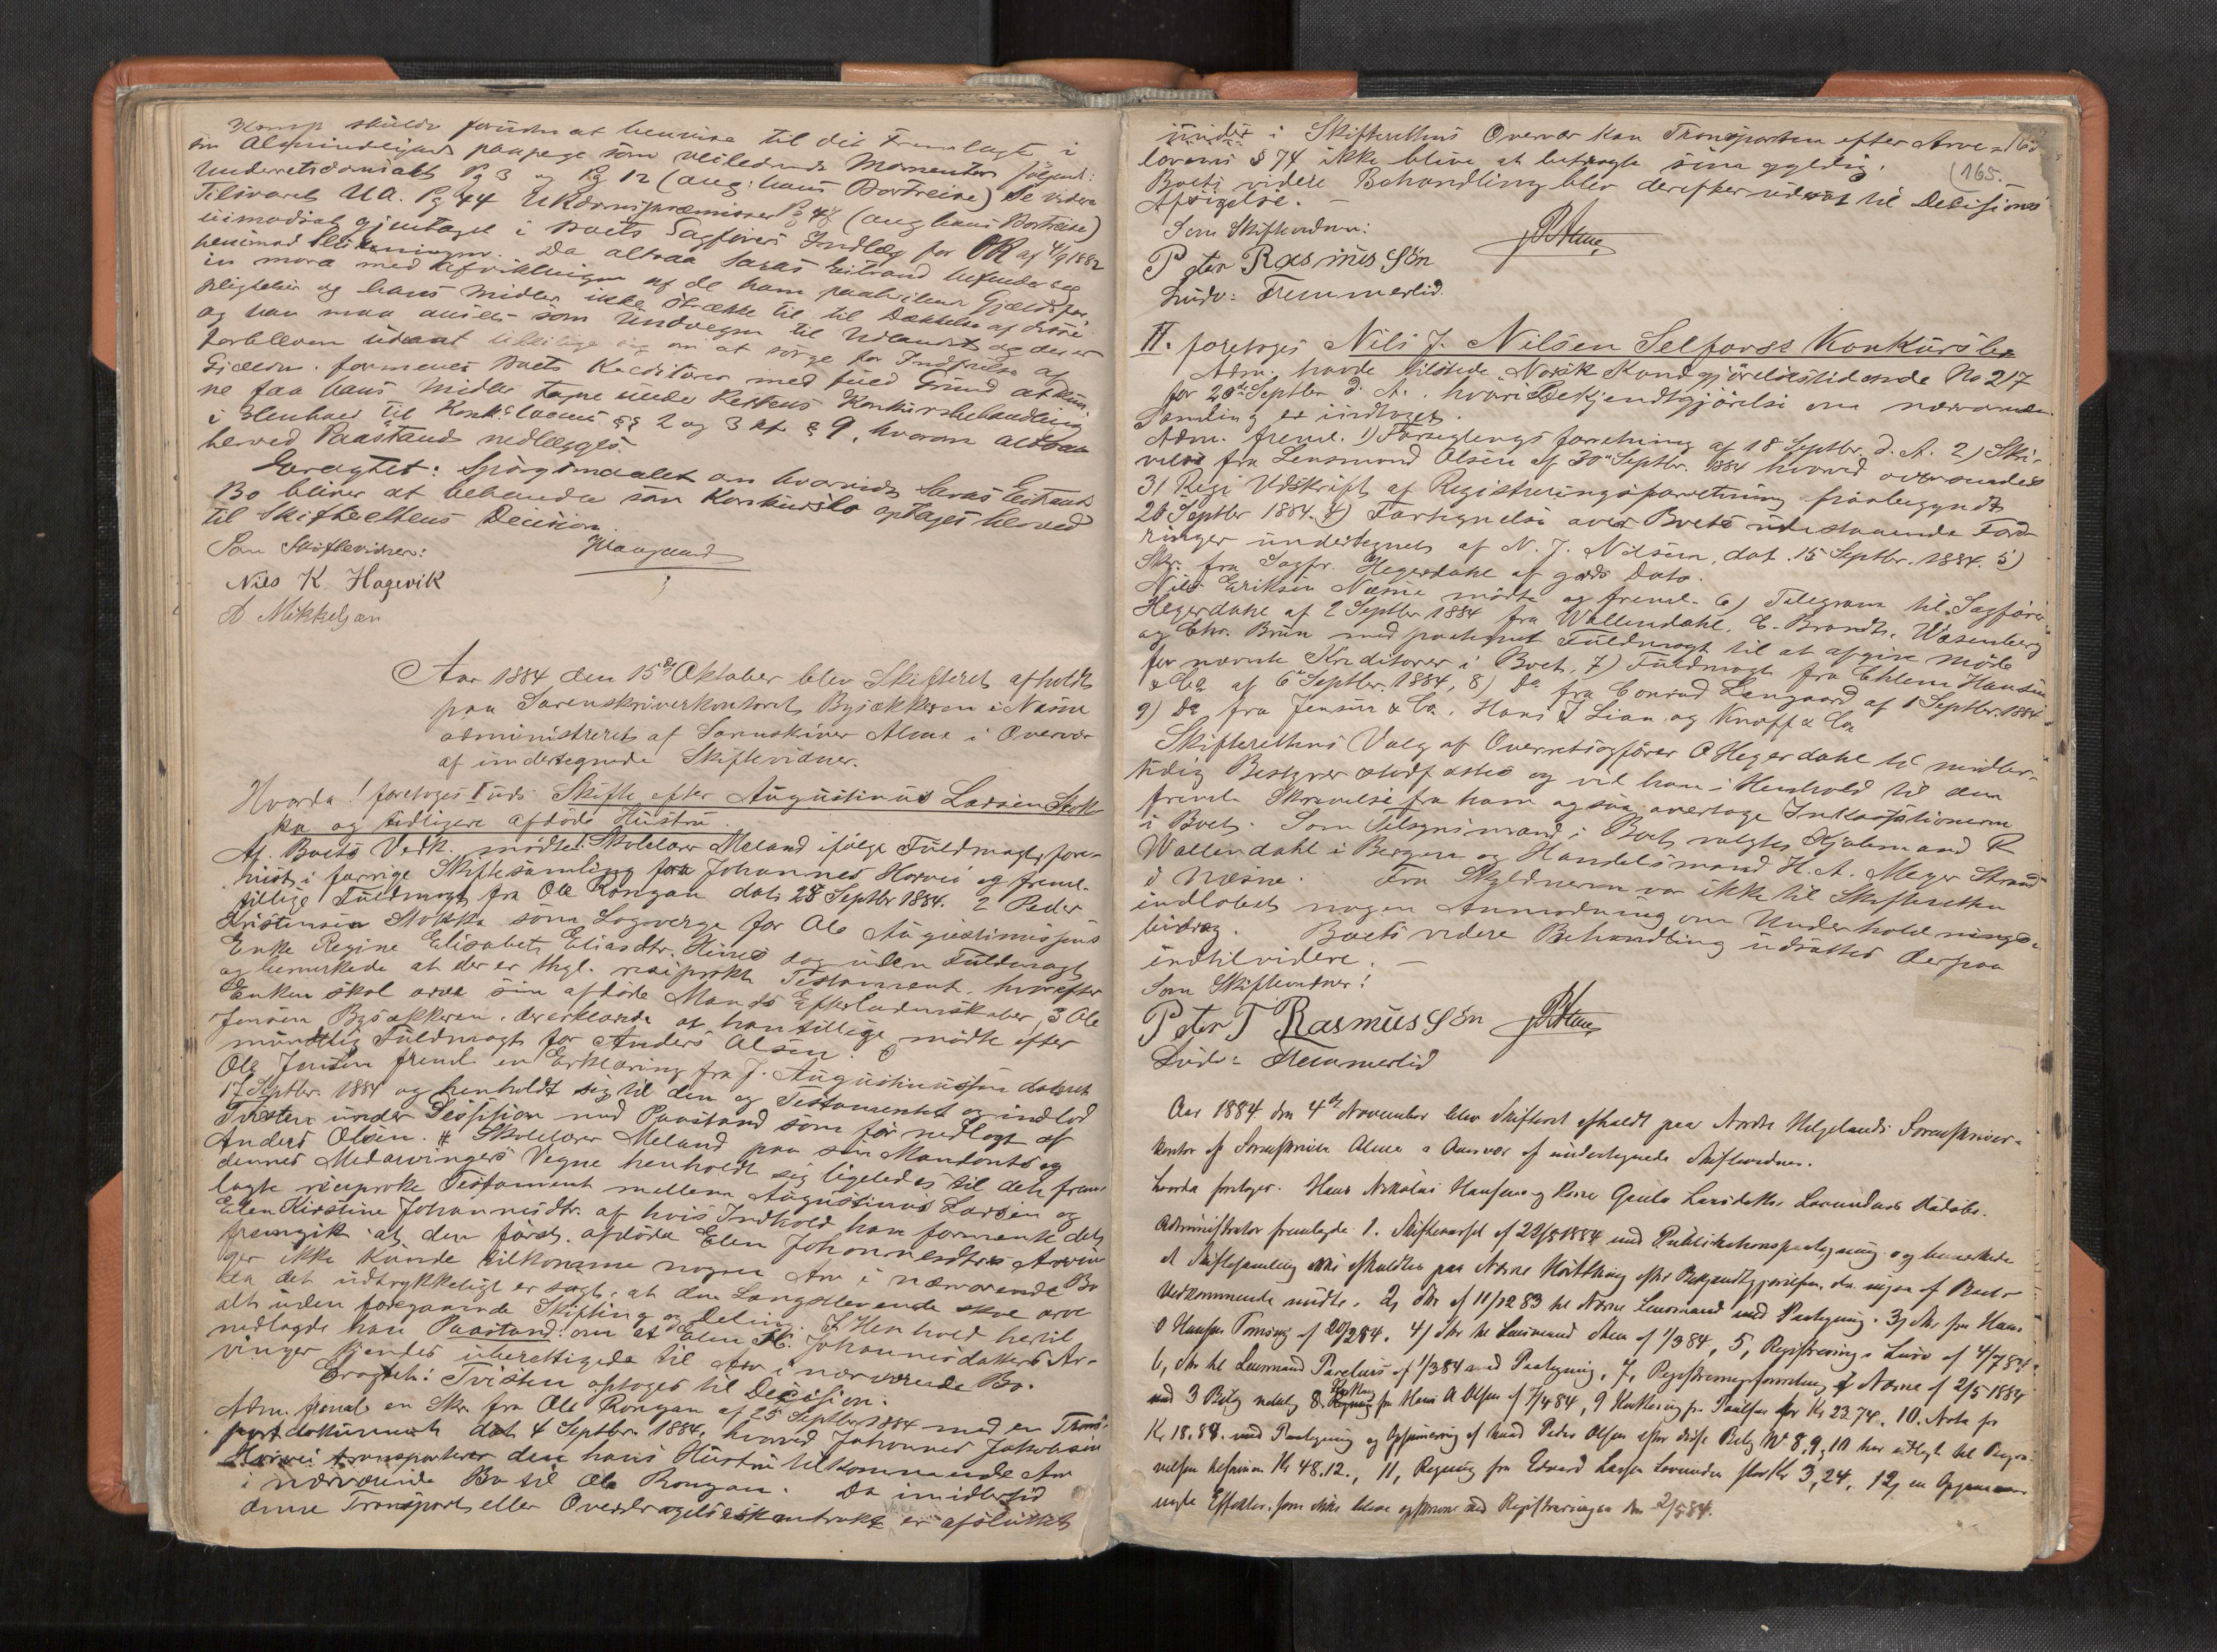 skulde foruden at henvise til det Fremlagte i
sin Almindelighed paapege som veiledende Momenter følgende:
Underretsdomsakt Pg 3 og Pg 12 (ang: hans Bortreise) Se videre
Tilsvaret UA. Pg 44 URdomspræmisser Pg 48 (ang hans Bortreise)
uimodsat gjentaget i Boets Sagførers Indlæg for OR af 4/9 1882
Da altsaa Laras Eitrand befinder sig
in mora med Afviklingen af de ham paahvilende Gjældsfor
pligtelser og hans Midler ikke strække til til Dækkelse af disse
og han maa ansees som Undvegen til Udlandet og der er
forbleven uden at om at sørge for Indfrielse af
Gjælden, formenes Boets Kreditorer med fuld Grund at kun-
ne faa hans Midler tagne under Rettens Konkursbehandling
i Henhold til Konk. lovens §§ 2 og 3 cf § 9, hvorom altsaa
herved Paastand nedlægges.
Eragtet: Spørgsmaalet om hvorvidt Laras Eitrands
Bo bliver at behandle som Konkursbo optages herved
til Skifterettens Decision.
Som Skiftevidner:
Nils K. Hagevik
A Mikkelsen
Aar 1884 den 15de Oktober blev Skifteret afholdt
paa Sorenskriverkontoret Bysækkeren i Næsne
administreret af Sorenskriver Alme i Overvær
af undertegnede Skiftevidner.
Hvorda! foretoges I uds. Skifte efter Augustinus Larsen Stok-
ka og tidligere afdøde Hustru.
Af Boets Vedk. mødte 1 Skolelærer Meland ifølge Fuldmagt, fore-
vist i forrige Skiftesamling fra Johannes Horvei og freml.
tillige Fuldmagt fra Ole Rongan dat. 28 Septbr 1884. 2 Peder
Kristensen Stokka som Lagverge for Ole Augustinussens
Enke Regine Elisabet Eliasdtr. Hines dog uden Fuldmagt
og bemerkede at der er thgl. reciprokt Testament, hvorefter
Enken skal arve sin afdøde Mands Efterladenskaber, 3 Ole
Jensen Bysækkeren, der erklærede at han tillige mødte efter
mundtlig Fuldmagt for Anders Olsen.
Ole Jensen freml. en Erklæring fra J. Augustinussen dateret
17 Septbr. 1884 og henholdt sig til den og Testamentet og indlod
Tvisten under Decision med Paastand som før nedlagt af
Anders Olsen. Skolelærer Meland paa sin Mandants og
dennes Medarvingers Vegne henholdt sig ligeledes til dete frem-
lagte reciproke Testament mellem Augustinus Larsen og
Elen Kirstine Johannesdtr. af hvis Indhold han formente det
fremgik at den først afdøde Elen Johannesdtrs Arvin
ger ikke kunde tilkomme nogen Arv i nærværende Bo
da det udtrykkeligt er sagt, at den Længstlevende skal arve
alt uden foregaaende Skifting og Deling. I Henhold hertil
nedlagde han Paastand om at Elen K. Johannesdatters Ar-
vinger kjendes uberettigede til Arv i nærværende Bo.
Eragtet: Tvisten optages til Decision.
Adm. freml. en Skr. fra Ole Rongan af 25 Septbr 1884 med en Trans-
portdokument dat. 4 Septbr 1884, hvorved Johannes Jakobsen
Horvei transporterer den hans Hustru tilkommende Arv
i nærværende Bo til Ole Rongan. Da imidlertid
denne Transport eller Overdragelseskontrakt er afsluttet
165
(165.
under i Skifterettens Overvær kan Transporten efter Arve-
lovens § 74 ikke blive at betragte som gyldig.
Boets videre Behandling blev derefter udsat til Decisions
Afsigelse.
Som Skiftevidner:
Peter Rasmussøn
Ludv: Hemmerlid
II. foretoges Nils J. Nilsen Selfors's Konkursbo
Adm. havde tilstede Norsk Kundgjørelsestidende No 217
for 20de Septbr d. A., hvori Bekjendtgjørelse om nærværende
Samling er indtaget.
Adm. freml. 1) Forseglingsforretning af 18 Septbr. d. A. 2) Skri-
velse fra Lensmand Olsen af 30te Septbr. 1884 hvorved oversendes
3) Regi Udskrift af Registreringsforretning paabegyndt
20 Septbr 1884. 4) Fortegnelse over Boets udestaaende Ford-
ringer undertegnet af N. J. Nilsen, dat. 15 Septbr. 1884. 5)
Skr. fra Sagfr. Hegerdahl af gaards Dato.
Nils Eriksen Næsne mødte og freml. 6) Telegram til Sagfører
Hegerdahl af 2 Septbr 1884 fra Wallendahl, C. Brandt, Wesenberg
og Chr. Bruun med paategnet Fuldmagt til at afgive Møde
for nævnte Kreditorer i Boet, 7) Fuldmagt fra Ehlem Hansen
& Co af 6te Septbr. 1884, 8) Do fra Conrad Langaard af 1 Septbr. 1884
9) Do fra Jensen & Co. Hans J Lian og Knoff & Co
Skifterettens Valg af Overretssagfører O Hegerdahl til midler-
tidig Bestyrer stadfæstes og vil han i Henhold til den
freml. Skrivelse fra ham ogsaa overtage Inkassationerne
i Boet. Som Tilsynsmand i Boet valgtes Kjøbmand R.
Wallendahl i Bergen og Handelsmand H. A. Meyer Strand
i Næsne. Fra Skyldneren var ikke til Skifteretten
indløbet nogen Anmodning om Underholdnings-
bidrag. Boets videre Behandling udsattes derpaa
indtilvidere.
Som Skiftevidner!
Peter T Rasmussøn
Ludv: Hemmerlid
Aar 1884 den 4de November blev Skifteret afholdt paa Nordre Helgelands Sorenskriver-
kontor af Sorenskriver Alme i Overvær af undertegnede Skiftevidner.
Hvorda foretoges. Hans Nikolai Hansens og Kone Larsdatter Lovundens Dødsbo.
Administrator fremlagde 1. Skiftevarsel af 22/8 1884 med Publikationspaategning og bemerkede
at Skiftesamling ikke afholdtes paa Næsne Høstthing efter Bekjendtgjørelsen, da ingen af Boets
Vedkommende mødte. 2) Skr af 11/12 83 til Næsne Lensmand med Paategning. 3) Skr fra Hans
O Hansen Tonsvig af 20/2 84. 4) Skr til Lensmand af 1/3 84, 5, Registrerings Lurø af 4/7 84.
6, Skr til Lensmand Parelius af 1/3 84 med Paategning, 7, Registreringsforretning af Næsne af 2/5 1884
med 3 Bilag 8. Regning fra Hans A Olsen af 7/4 84, 9 Kvittering fra Paulsen for Kr 23.74. 10. Nota for
Kr. 18.88. med Paategning og af Peder Olsen efter disse Bilag No 8, 9, 10 har udlagt til Begra-
velsen Kr 48.12., 11, Regning fra Edvard Larsen Lovunden stor Kr 3,24, 12, en
Effekter, som ikke bleve opskrevne ved Registreringen den 2/5 84.